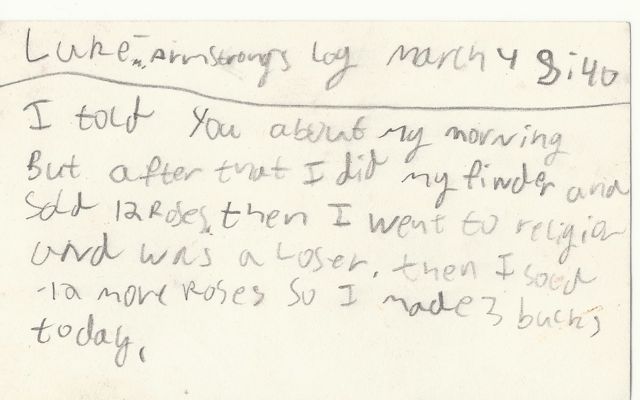 Luke Armstrong's Log March 4 8:40
I told You about my morning
But after that I did my finder and
Sold 12 Roses, then I went to religion
and was a Loser. then I sold
12 more Roses So I made 3 bucks
today,